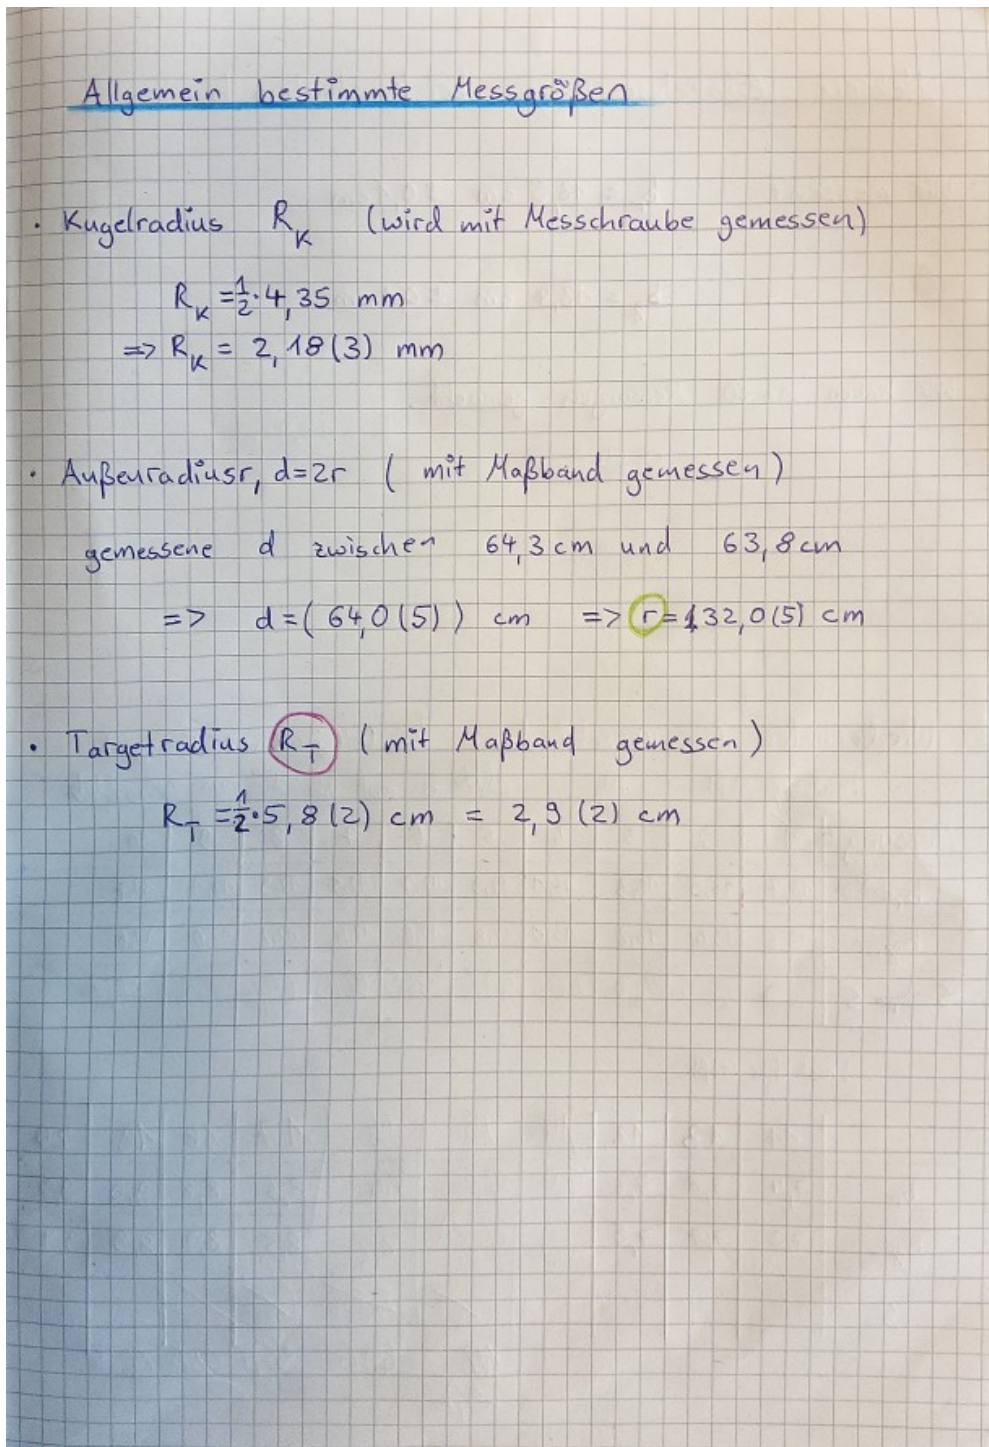 Allgemein bestimmte Messgrößen
· Kugelradius R_K (wird mit Messchraube gemessen)
R_K = 1/2 · 4,35 mm
=> R_K = 2,18(3) mm
· Außenradius r, d=2r ( mit Maßband gemessen )
gemessene d zwischen 64,3 cm und 63,8 cm
=> d = ( 64,0(5) ) cm => r = 32,0(5) cm
· Targetradius R_T ( mit Maßband gemessen )
R_T = 1/2 · 5,8 (2) cm = 2,9 (2) cm